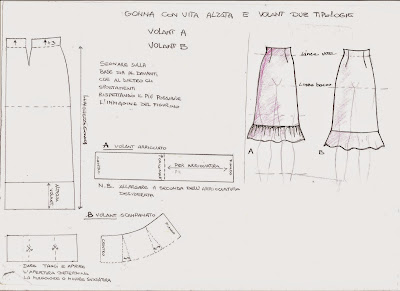 GONNA CON VITA ALZATA E VOLANT DUE TIPOLOGIE
VOLANT A
VOLANT B
SEGNARE SULLA
BASE SIA AL DAVANTI
CHE AL DIETRO GLI
SPOSTAMENTI
RISPETTANDO IL PIÙ POSSIBILE
L'IMMAGINE DEL FIGURINO
+3
LUNGHEZZA GONNA
ALTEZZA
VOLANT
A VOLANT ARRICCIATO
PER ARRICCIATURA
N.B. ALLARGARE A SECONDA DELL'ARRICCIATURA
DESIDERATA
B VOLANT SCAMPANATO
CENTRO
DARE TAGLI E APRIRE
L'APERTURA DETERMINA
LA MAGGIORE O MINORE SVASATURA
LINEA VITA
LINEA BACINO
A
B